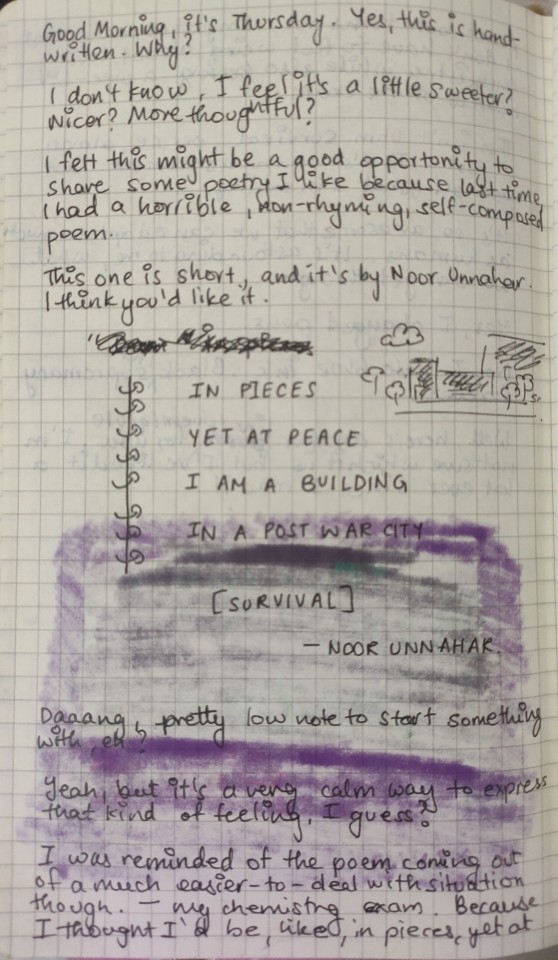 Good Morning, it's Thursday. Yes, this is hand-
written. Why?
I don't know, I feel it's a little sweeter?
Nicer? More thoughtful?
I felt this might be a good opportunity to
share some poetry I like because last time
I had a horrible, non-rhyming, self-composed
poem.
This one is short, and it's by Noor Unnahar.
I think you'd like it.
IN PIECES
YET AT PEACE
I AM A BUILDING
IN A POST WAR CITY
[SURVIVAL]
— NOOR UNNAHAR.
Daaang, pretty low note to start something
with, eh?
Yeah, but it's a very calm way to express
that kind of feeling, I guess?
I was reminded of the poem coming out
of a much easier-to-deal with situation
though. — my chemistry exam. Because
I thought I'd be, liked, in pieces, yet at